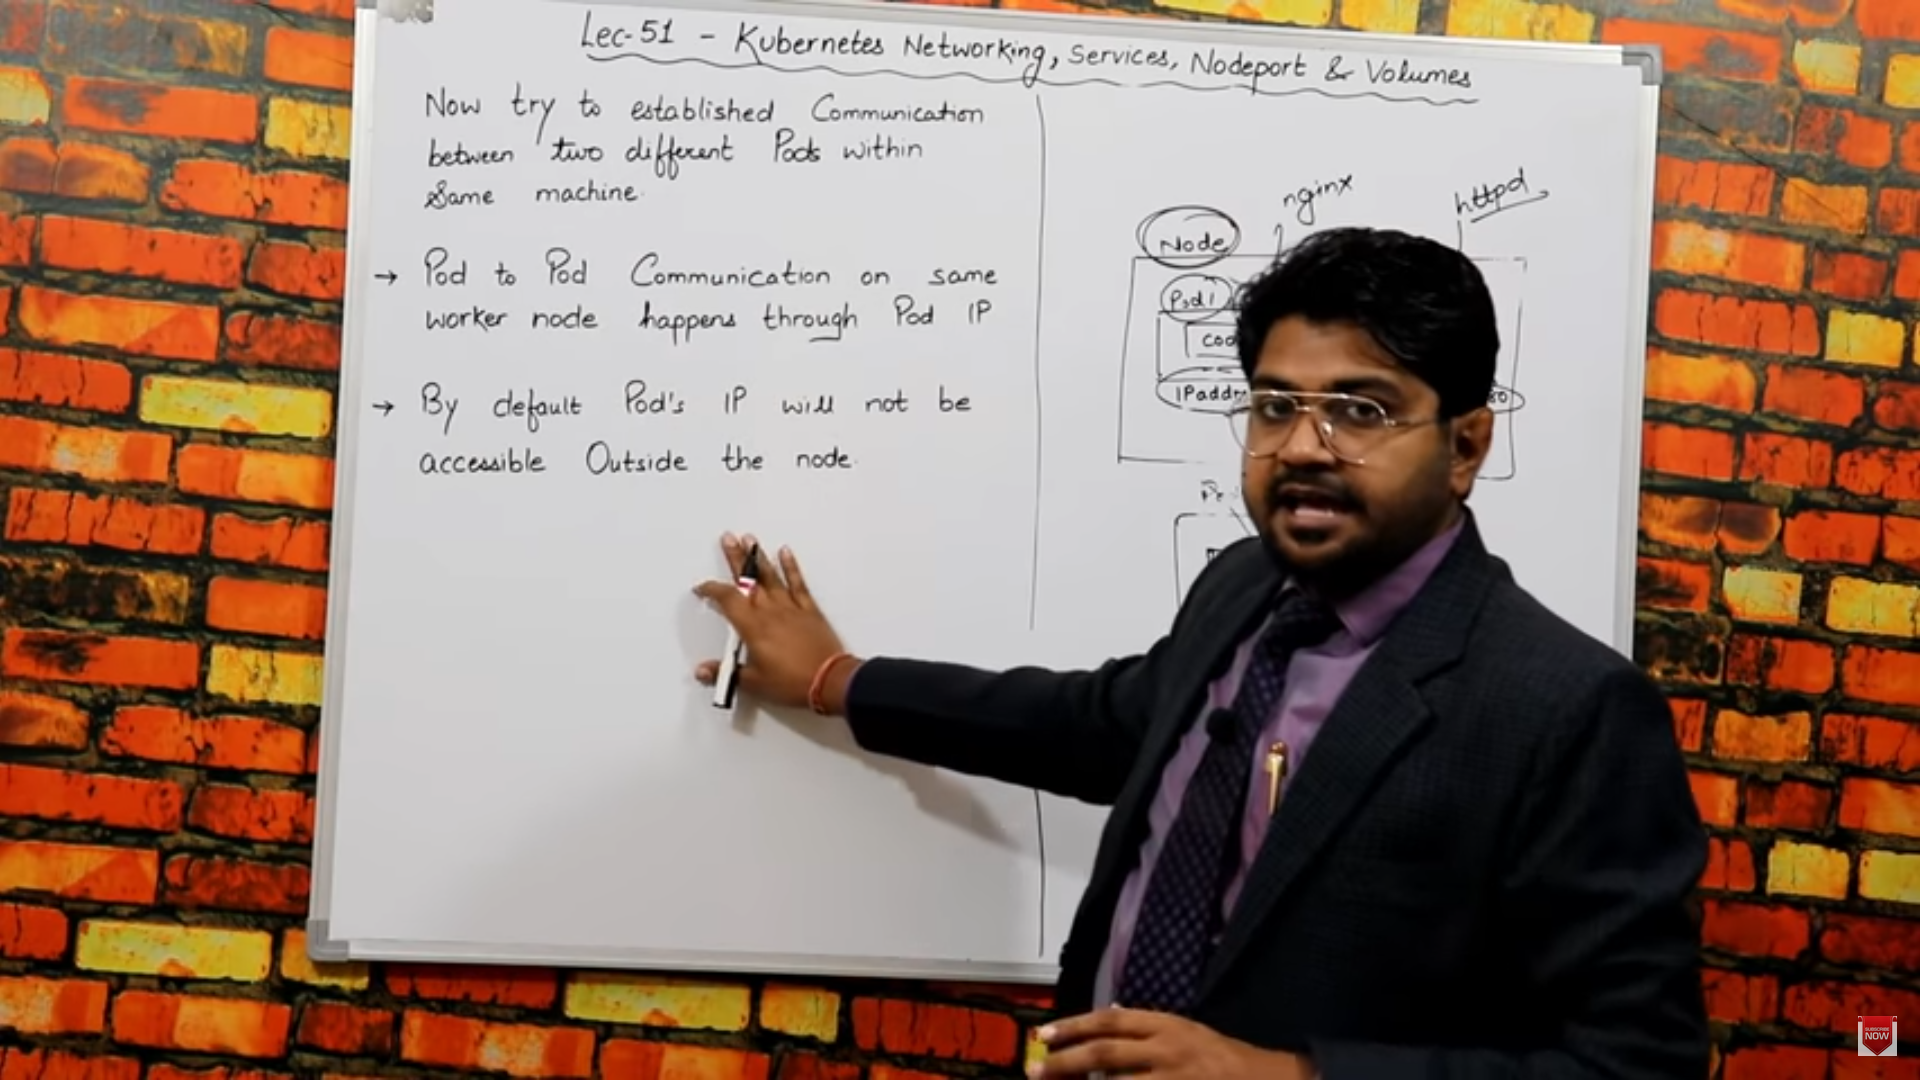 Lec-51 - Kubernetes Networking, Services, Nodeport & Volumes
Now try to established Communication
between two different Pods within
Same machine.
→ Pod to Pod Communication on same
worker node happens through Pod IP
→ By default Pod's IP will not be
accessible Outside the node.
nginx
httpd
Node
Pod1
IPaddr
80
SUBSCRIBE
NOW